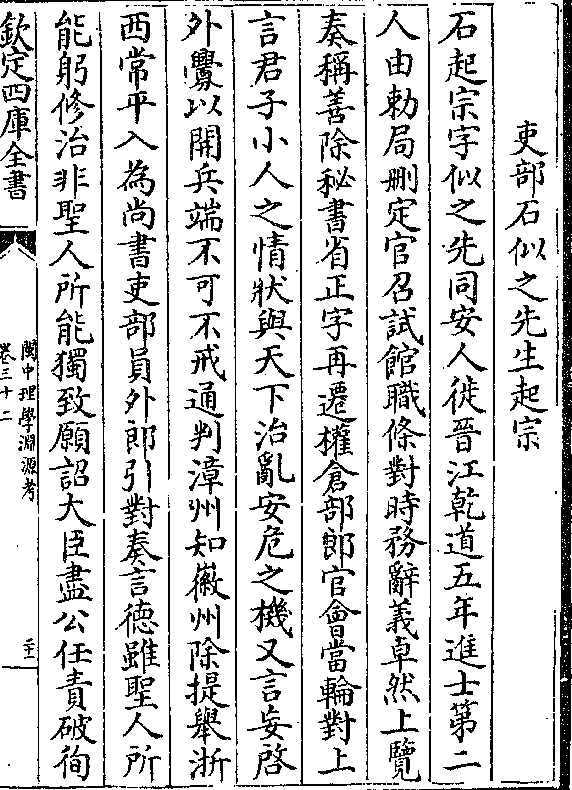 吏部石似之先生起宗
石起宗字似之先同安人徙晉江乾道五年進士第二
人由勅局刪定官召試館職條對時務辭義卓然上覽
奏稱善除秘書省正字再遷權倉部郎官會當輪對上
言君子小人之情狀與天下治亂安危之機又言妄啓
外釁以開兵端不可不戒通判漳州知徽州除提舉浙
西常平入為尚書吏部員外郎引對奏言德雖聖人所
能躬修治非聖人所能獨致願詔大臣盡公任責破徇
欽定四庫全書
閩中理學淵源考
卷三十二
二十一